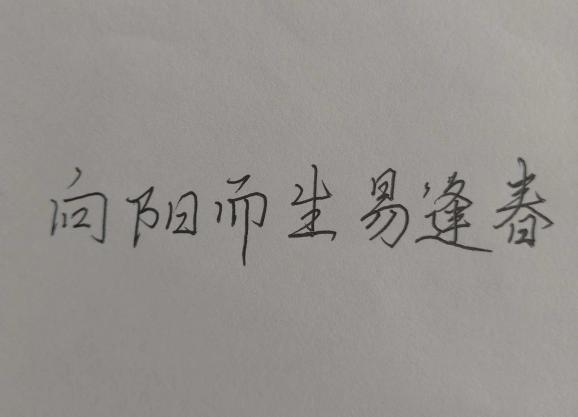 向阳而生易逢春